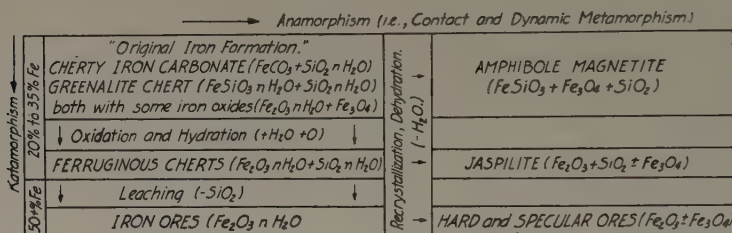 Anamorphism (i.e., Contact and Dynamic Metamorphism)
Katamorphism
20% to 35% Fe
"Original Iron Formation."
CHERTY IRON CARBONATE (FeCO3+SiO2 n H2O)
GREENALITE CHERT (FeSiO3 n H2O+SiO2 n H2O)
both with some iron oxides (Fe2O3 n H2O+Fe3O4)
Oxidation and Hydration (+H2O +O)
FERRUGINOUS CHERTS (Fe2O3 n H2O+SiO2 n H2O)
50+% Fe
Leaching (-SiO2)
IRON ORES (Fe2O3 n H2O
Recrystallization, Dehydration.
(-H2O.)
AMPHIBOLE MAGNETITE
(FeSiO3 + Fe3O4 + SiO2)
JASPILITE (Fe2O3+SiO2 ± Fe3O4)
HARD and SPECULAR ORES (Fe2O3 ± Fe3O4)